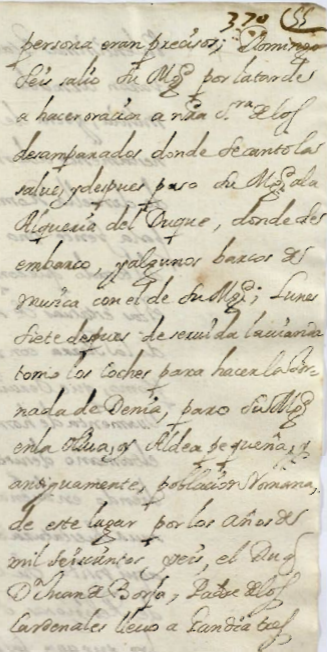 370
persona eran precisos; Domingo
seis salio su Mg.d por la tarde
a hacer oracion a nra S.ra de los
desamparados donde se canto la
salue, y despues paso su Mg.d a la
Riqueria del Duque, donde se
embarco, y algunos barcos de
musica con el de su Mg.d; Lunes
siete despues de seruida la uianda
tomo los coches para hacer la Jor-
nada de Denia, paro su Mg.d
en la oliua, oy Aldea pequeña, y
antiguamente, poblacion Romana,
de este lugar por los años de
mil seiscientos, y seis, el Duq.
D.n Juan de Borja, Padre de los
Cardenales lleuo a Gandia tres